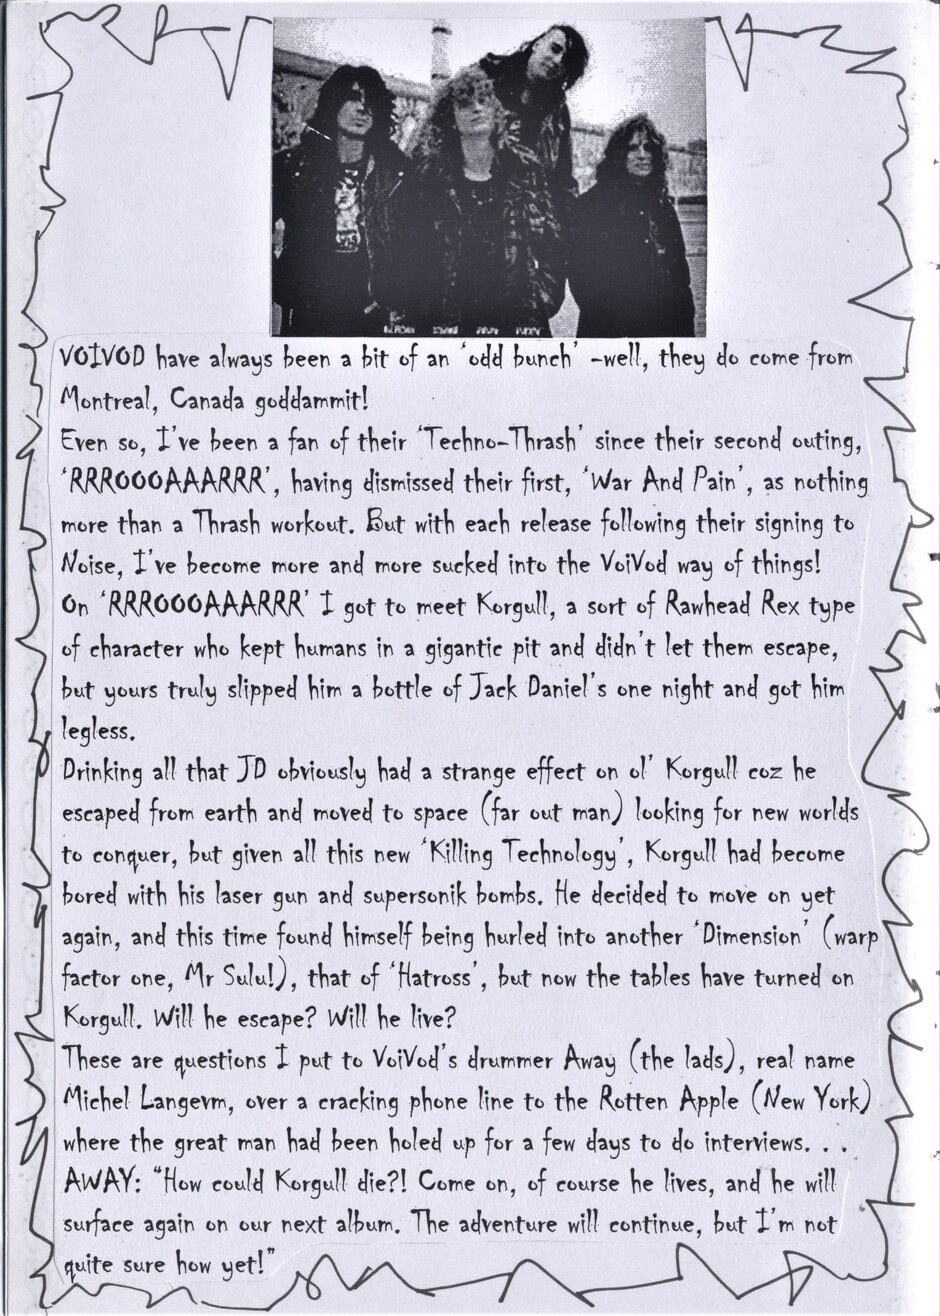 BLACKY SNAKE AWAY PIGGY
VOIVOD have always been a bit of an 'odd bunch' -well, they do come from
Montreal, Canada goddammit!
Even so, I've been a fan of their 'Techno-Thrash' since their second outing,
'RRROOOAAARRR', having dismissed their first, 'War And Pain', as nothing
more than a Thrash workout. But with each release following their signing to
Noise, I've become more and more sucked into the VoiVod way of things!
On 'RRROOOAAARRR' I got to meet Korgull, a sort of Rawhead Rex type
of character who kept humans in a gigantic pit and didn't let them escape,
but yours truly slipped him a bottle of Jack Daniel's one night and got him
legless.
Drinking all that JD obviously had a strange effect on ol' Korgull coz he
escaped from earth and moved to space (far out man) looking for new worlds
to conquer, but given all this new 'Killing Technology', Korgull had become
bored with his laser gun and supersonik bombs. He decided to move on yet
again, and this time found himself being hurled into another 'Dimension' (warp
factor one, Mr Sulu!), that of 'Hatross', but now the tables have turned on
Korgull. Will he escape? Will he live?
These are questions I put to VoiVod's drummer Away (the lads), real name
Michel Langevm, over a cracking phone line to the Rotten Apple (New York)
where the great man had been holed up for a few days to do interviews. . .
AWAY: "How could Korgull die?! Come on, of course he lives, and he will
surface again on our next album. The adventure will continue, but I'm not
quite sure how yet!"